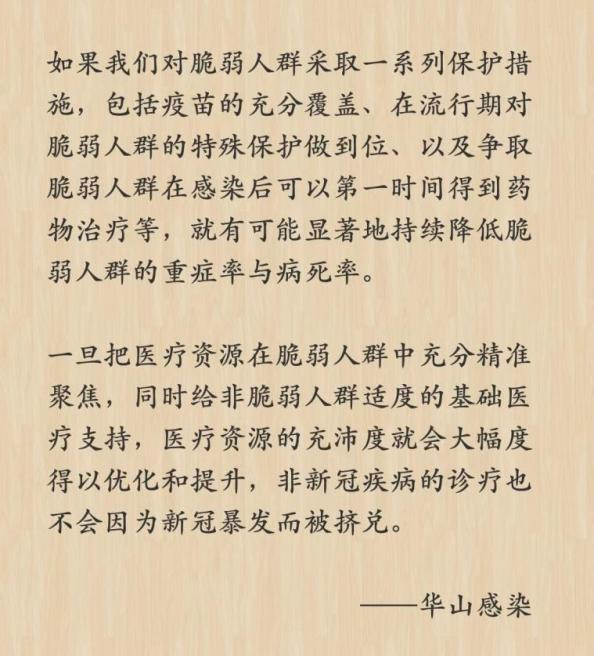 如果我们对脆弱人群采取一系列保护措
施，包括疫苗的充分覆盖、在流行期对
脆弱人群的特殊保护做到位、以及争取
脆弱人群在感染后可以第一时间得到药
物治疗等，就有可能显著地持续降低脆
弱人群的重症率与病死率。
一旦把医疗资源在脆弱人群中充分精准
聚焦，同时给非脆弱人群适度的基础医
疗支持，医疗资源的充沛度就会大幅度
得以优化和提升，非新冠疾病的诊疗也
不会因为新冠暴发而被挤兑。
——华山感染